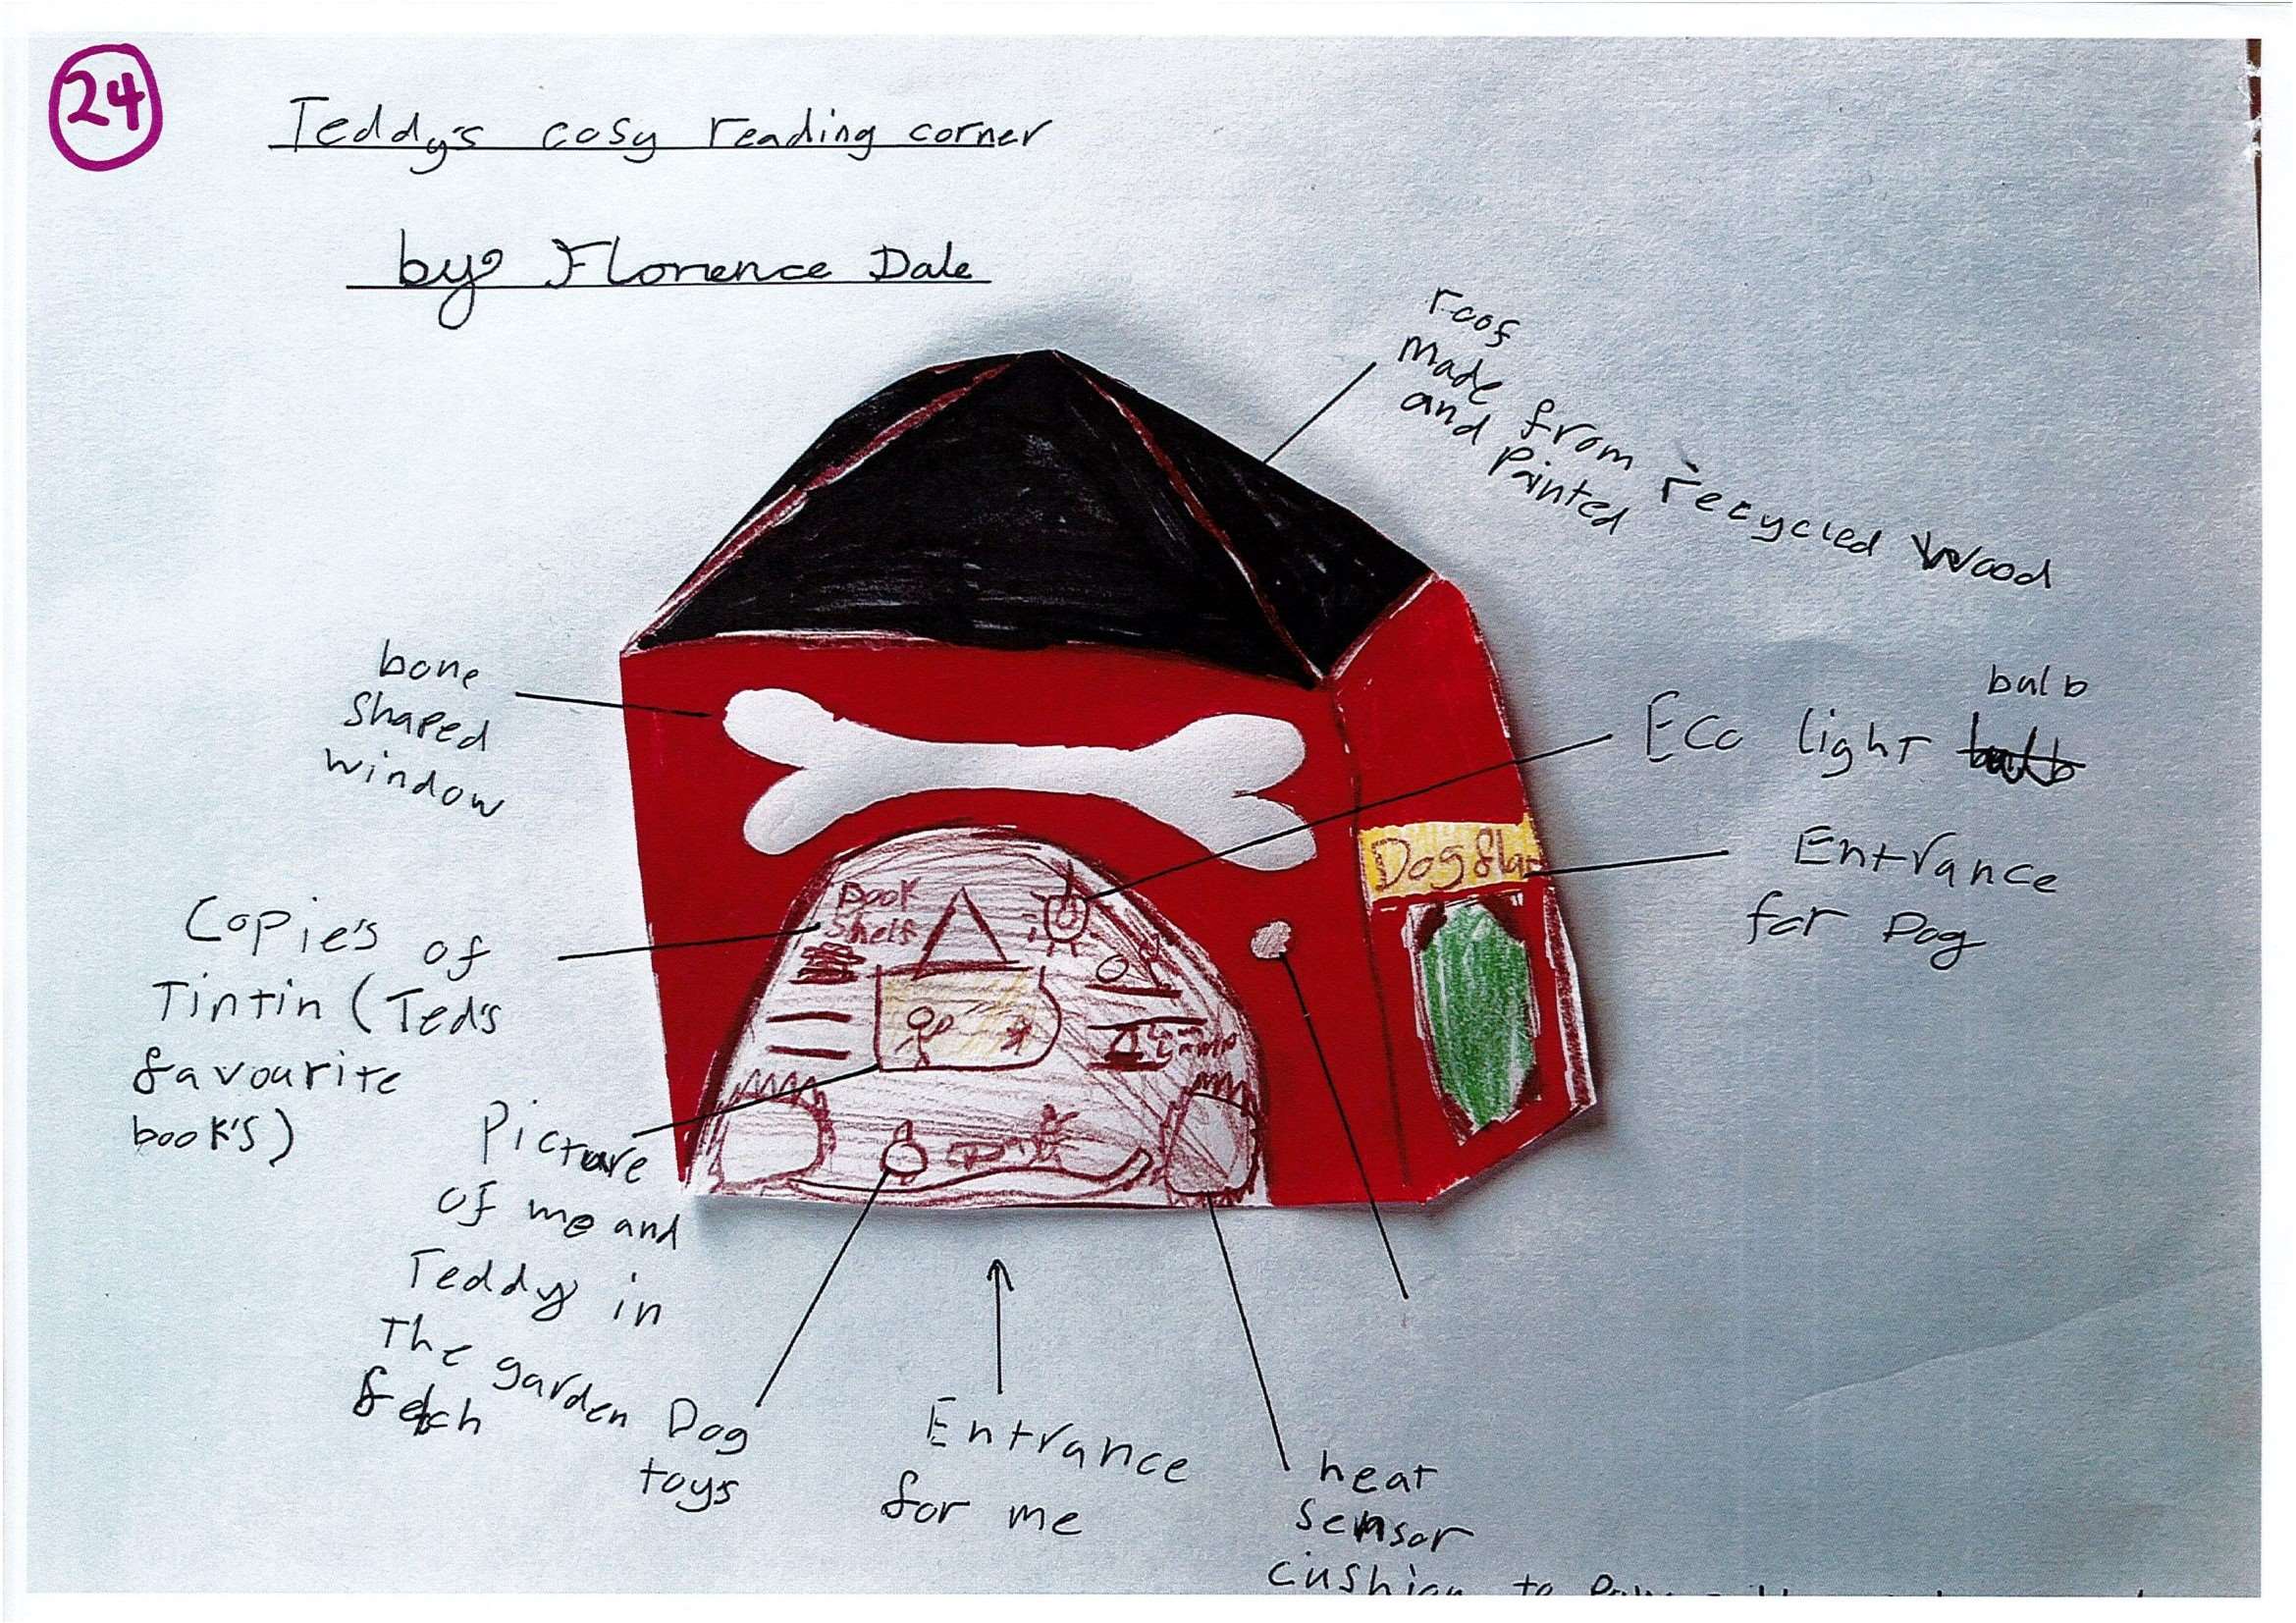 24
Teddy's cosy reading corner
by Florence Dale
roof
made from recycled wood
and Painted
bone
Shaped
window
bulb
Eco light bulb
Dog flap
Entrance
for Dog
Book
Shelf
Copie's of
Tintin (Ted's
favourite
book's)
Picture
of me and
Teddy in
The garden
fetch
Dog
toys
Entrance
for me
heat
Sensor
cushion to